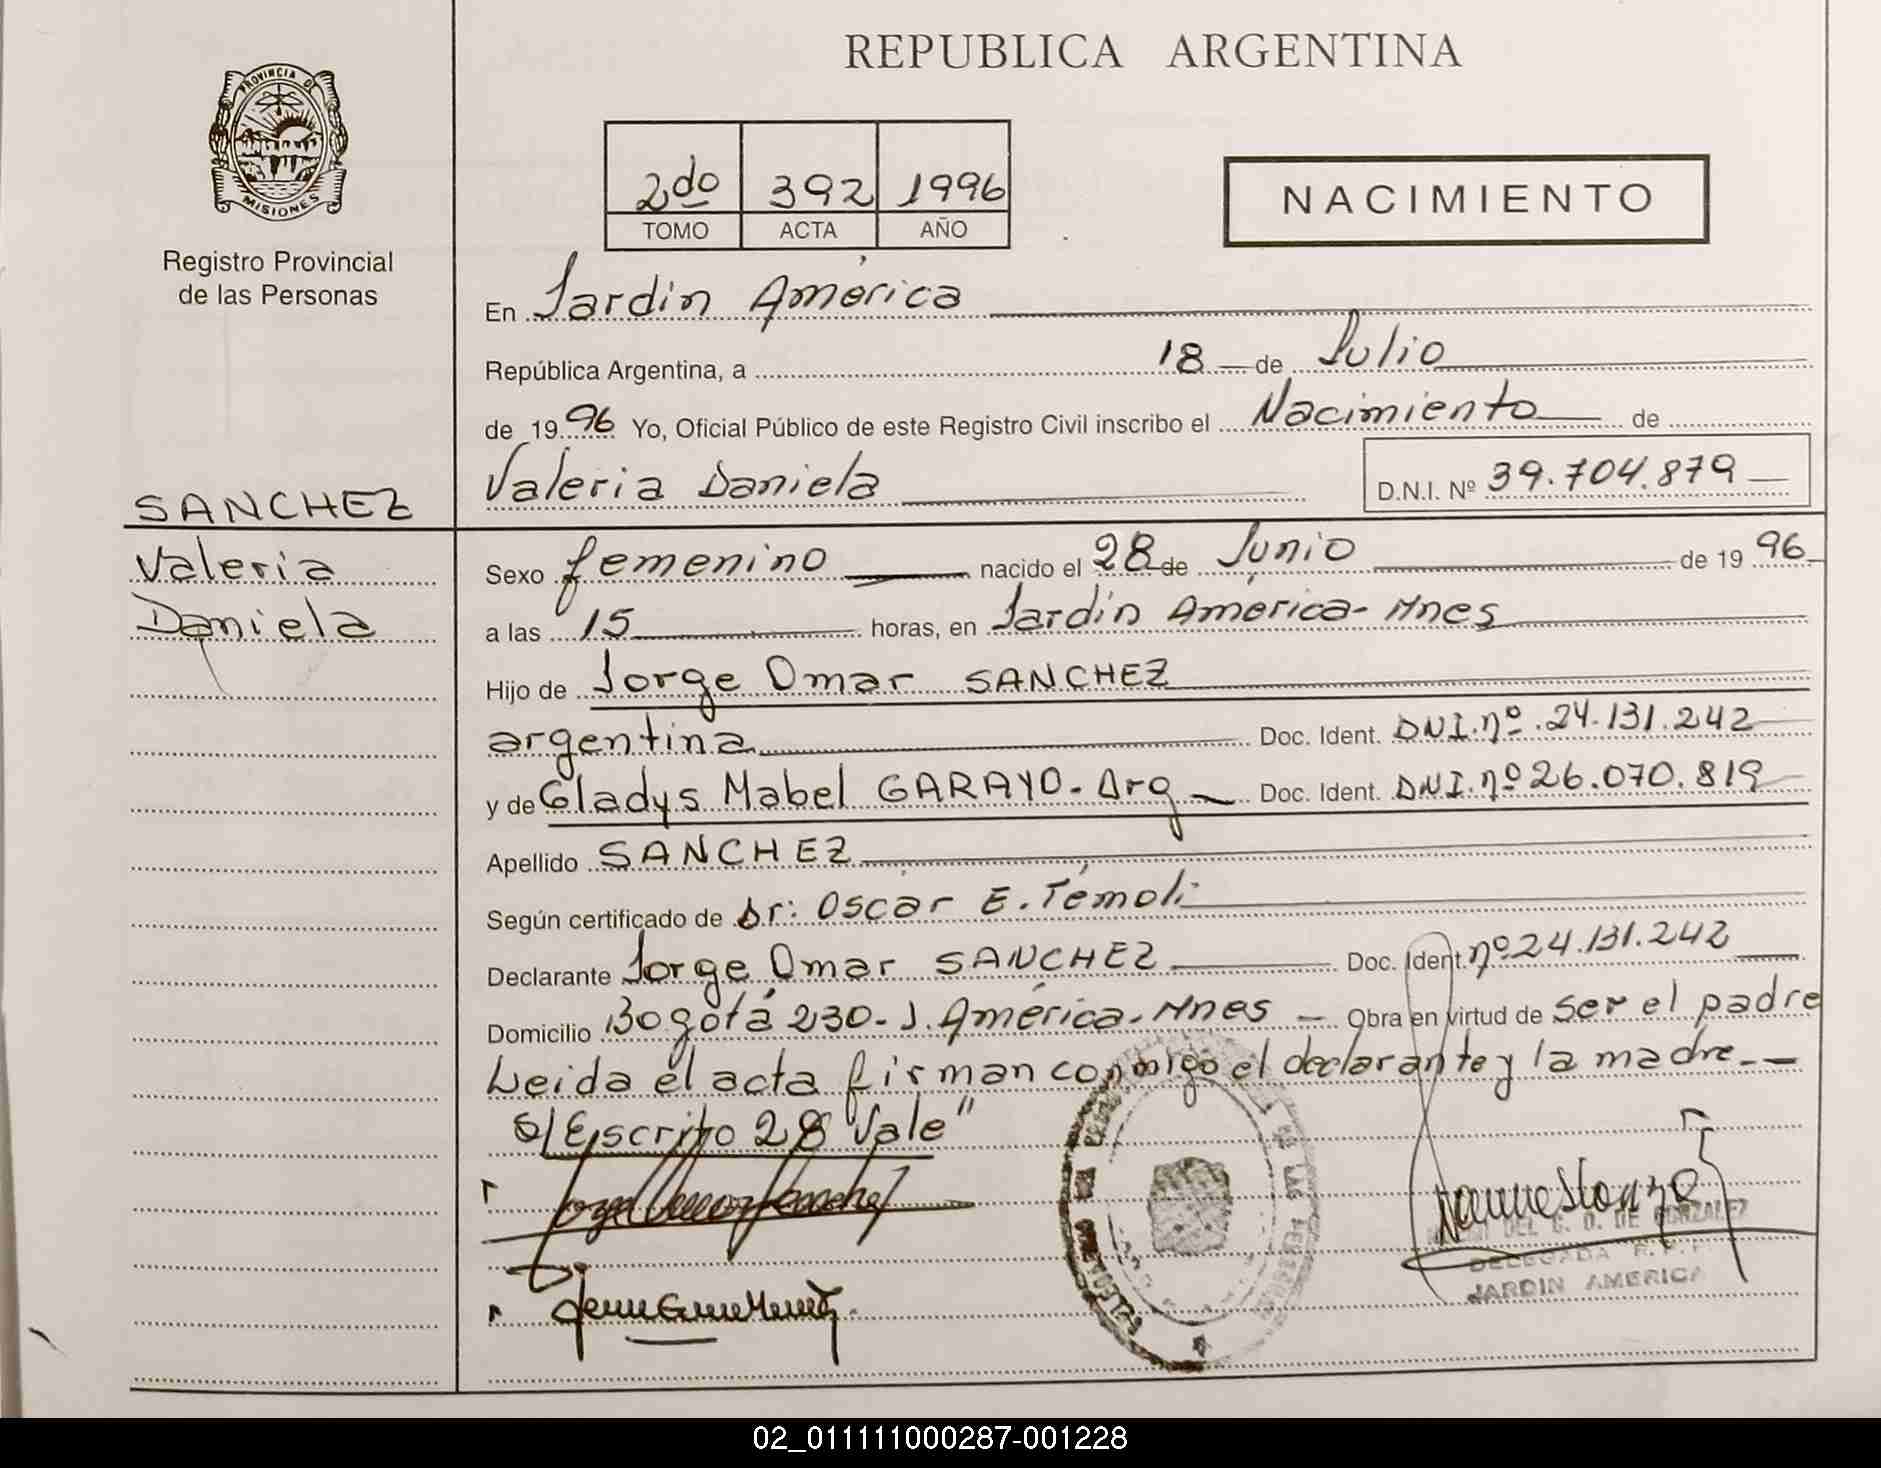 REPUBLICA ARGENTINA
PROVINCIA DE
MISIONES
Registro Provincial
de las Personas
2do 392 1996
TOMO ACTA AÑO
NACIMIENTO
En Jardín América
República Argentina, a 18 de Julio
de 1996 Yo, Oficial Público de este Registro Civil inscribo el Nacimiento de
Valeria Daniela D.N.I. Nº 39.704.879
SANCHEZ
Valeria
Daniela
Sexo femenino nacido el 28 de Junio de 1996
a las 15 horas, en Jardín América - Mnes
Hijo de Jorge Omar SANCHEZ
argentina Doc. Ident. DNI. nº 24.131.242
y de Gladys Mabel GARAYO - Arg Doc. Ident. DNI. nº 26.070.819
Apellido SANCHEZ
Según certificado de Dr: Oscar E. Témoli
Declarante Jorge Omar SANCHEZ Doc. Ident. nº 24.131.242
Domicilio Bogotá 230 - J. América - Mnes Obra en virtud de ser el padre
Leida el acta firman conmigo el declarante y la madre.-
S/ Escrito 28 Vale"
DEL C. D. DE GONZALEZ
DELEGADA R.P.P.
JARDIN AMERICA
02_011111000287-001228